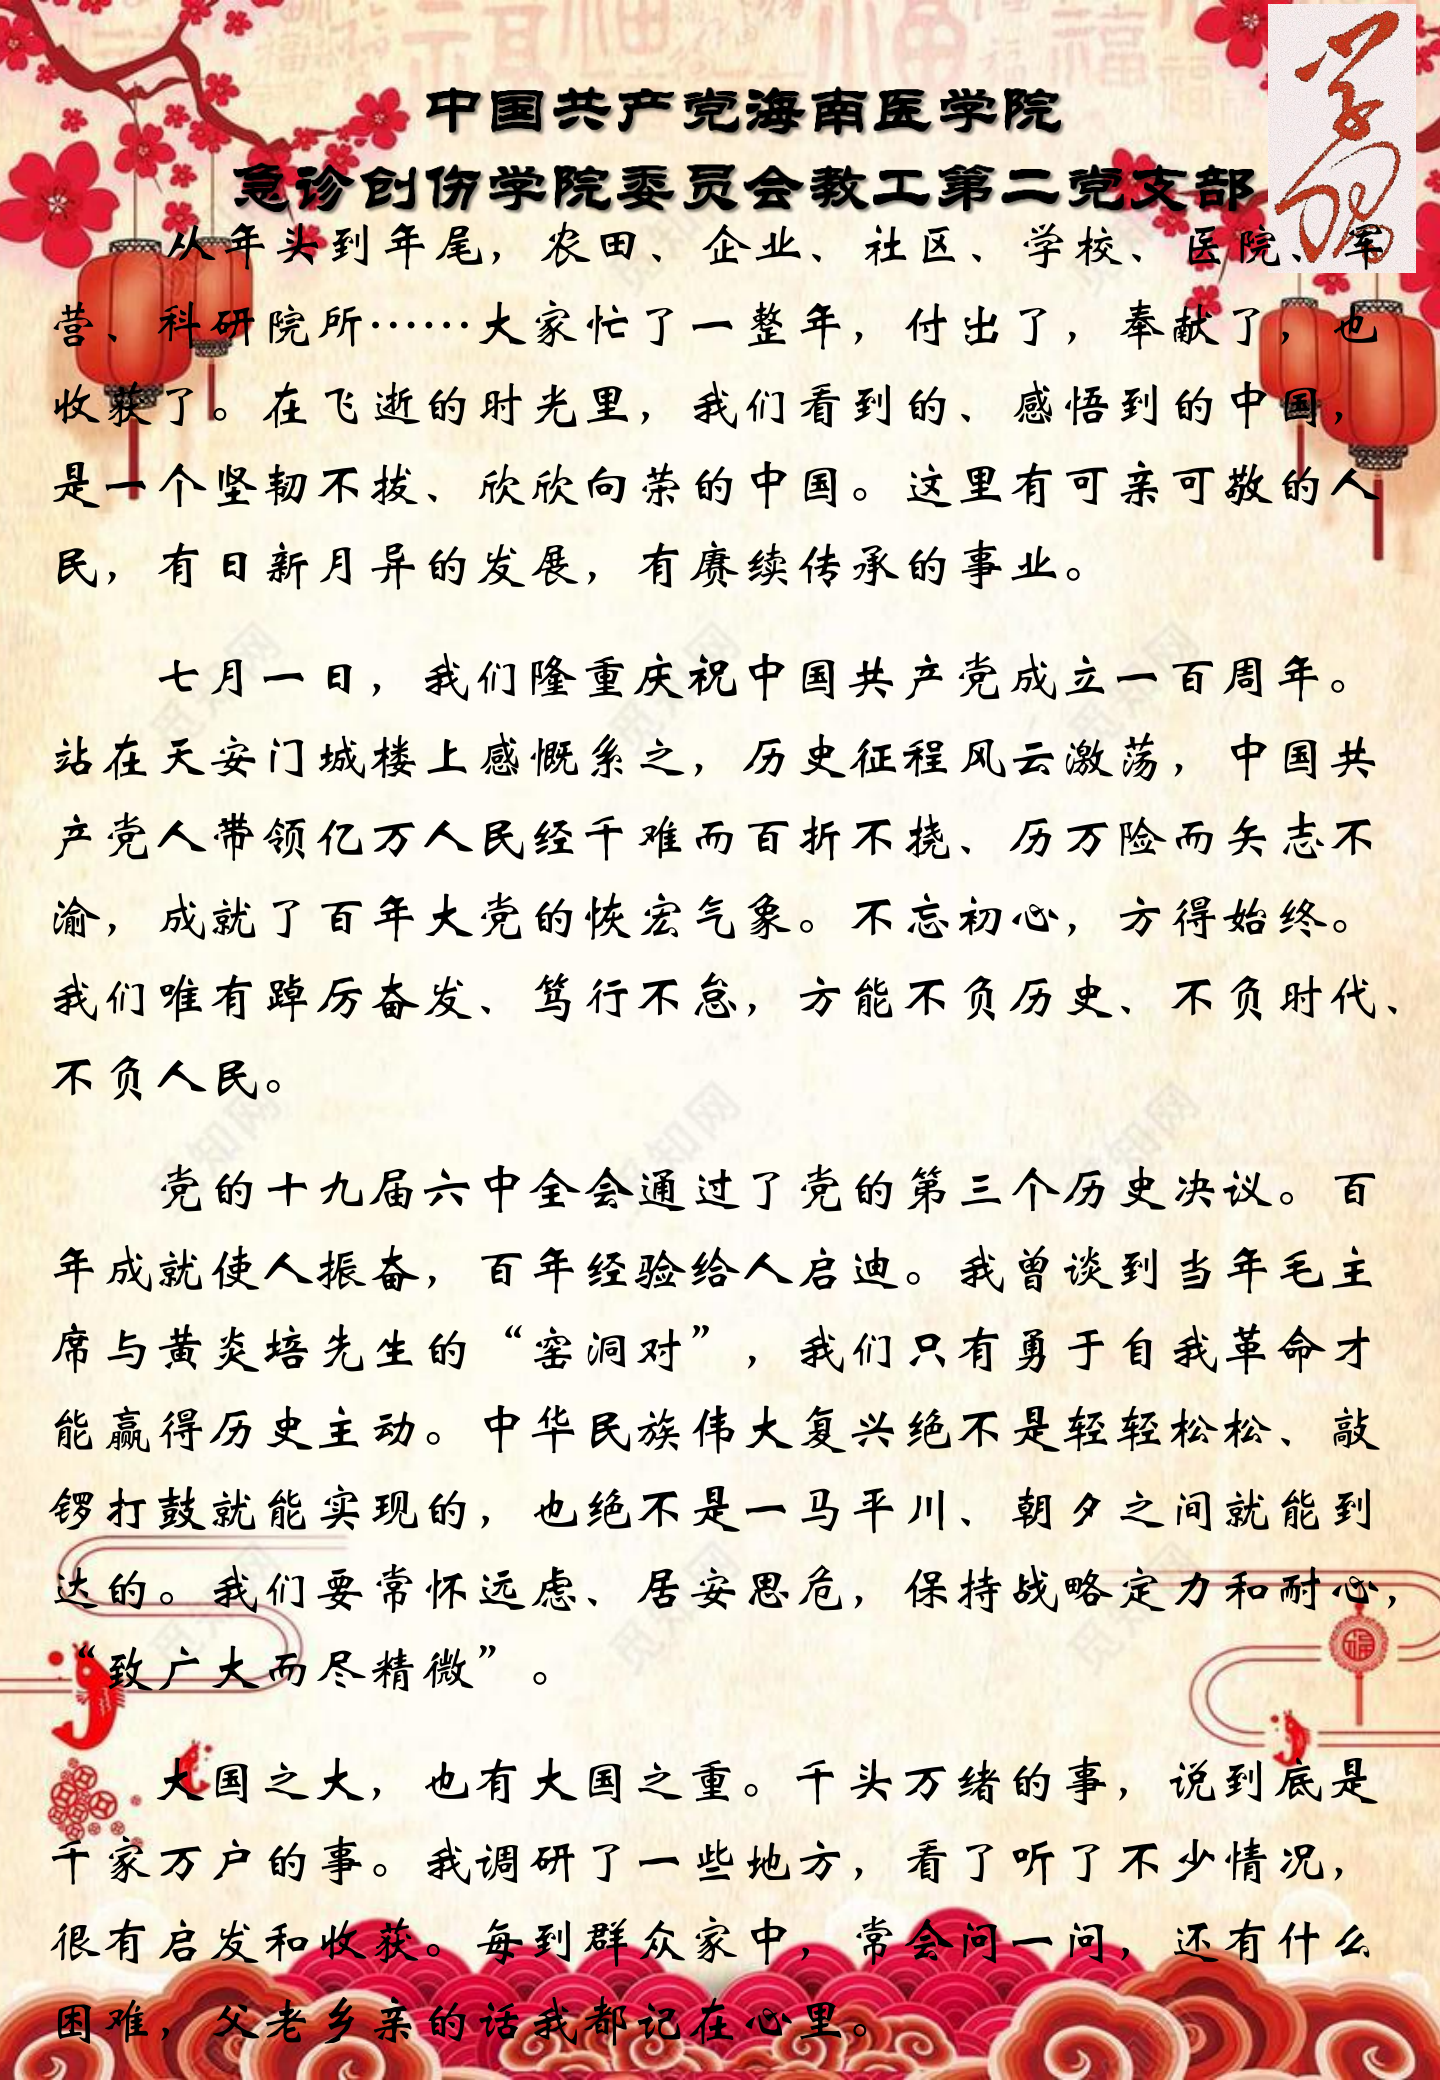 中国共产党海南医学院
急诊创伤学院委员会教工第二党支部
学习
从年头到年尾，农田、企业、社区、学校、医院、军
营、科研院所……大家忙了一整年，付出了，奉献了，也
收获了。在飞逝的时光里，我们看到的、感悟到的中国，
是一个坚韧不拔、欣欣向荣的中国。这里有可亲可敬的人
民，有日新月异的发展，有赓续传承的事业。
七月一日，我们隆重庆祝中国共产党成立一百周年。
站在天安门城楼上感慨系之，历史征程风云激荡，中国共
产党人带领亿万人民经千难而百折不挠、历万险而矢志不
渝，成就了百年大党的恢宏气象。不忘初心，方得始终。
我们唯有踔厉奋发、笃行不怠，方能不负历史、不负时代、
不负人民。
党的十九届六中全会通过了党的第三个历史决议。百
年成就使人振奋，百年经验给人启迪。我曾谈到当年毛主
席与黄炎培先生的“窑洞对”，我们只有勇于自我革命才
能赢得历史主动。中华民族伟大复兴绝不是轻轻松松、敲
锣打鼓就能实现的，也绝不是一马平川、朝夕之间就能到
达的。我们要常怀远虑、居安思危，保持战略定力和耐心，
“致广大而尽精微”。
大国之大，也有大国之重。千头万绪的事，说到底是
千家万户的事。我调研了一些地方，看了听了不少情况，
很有启发和收获。每到群众家中，常会问一问，还有什么
困难，父老乡亲的话我都记在心里。